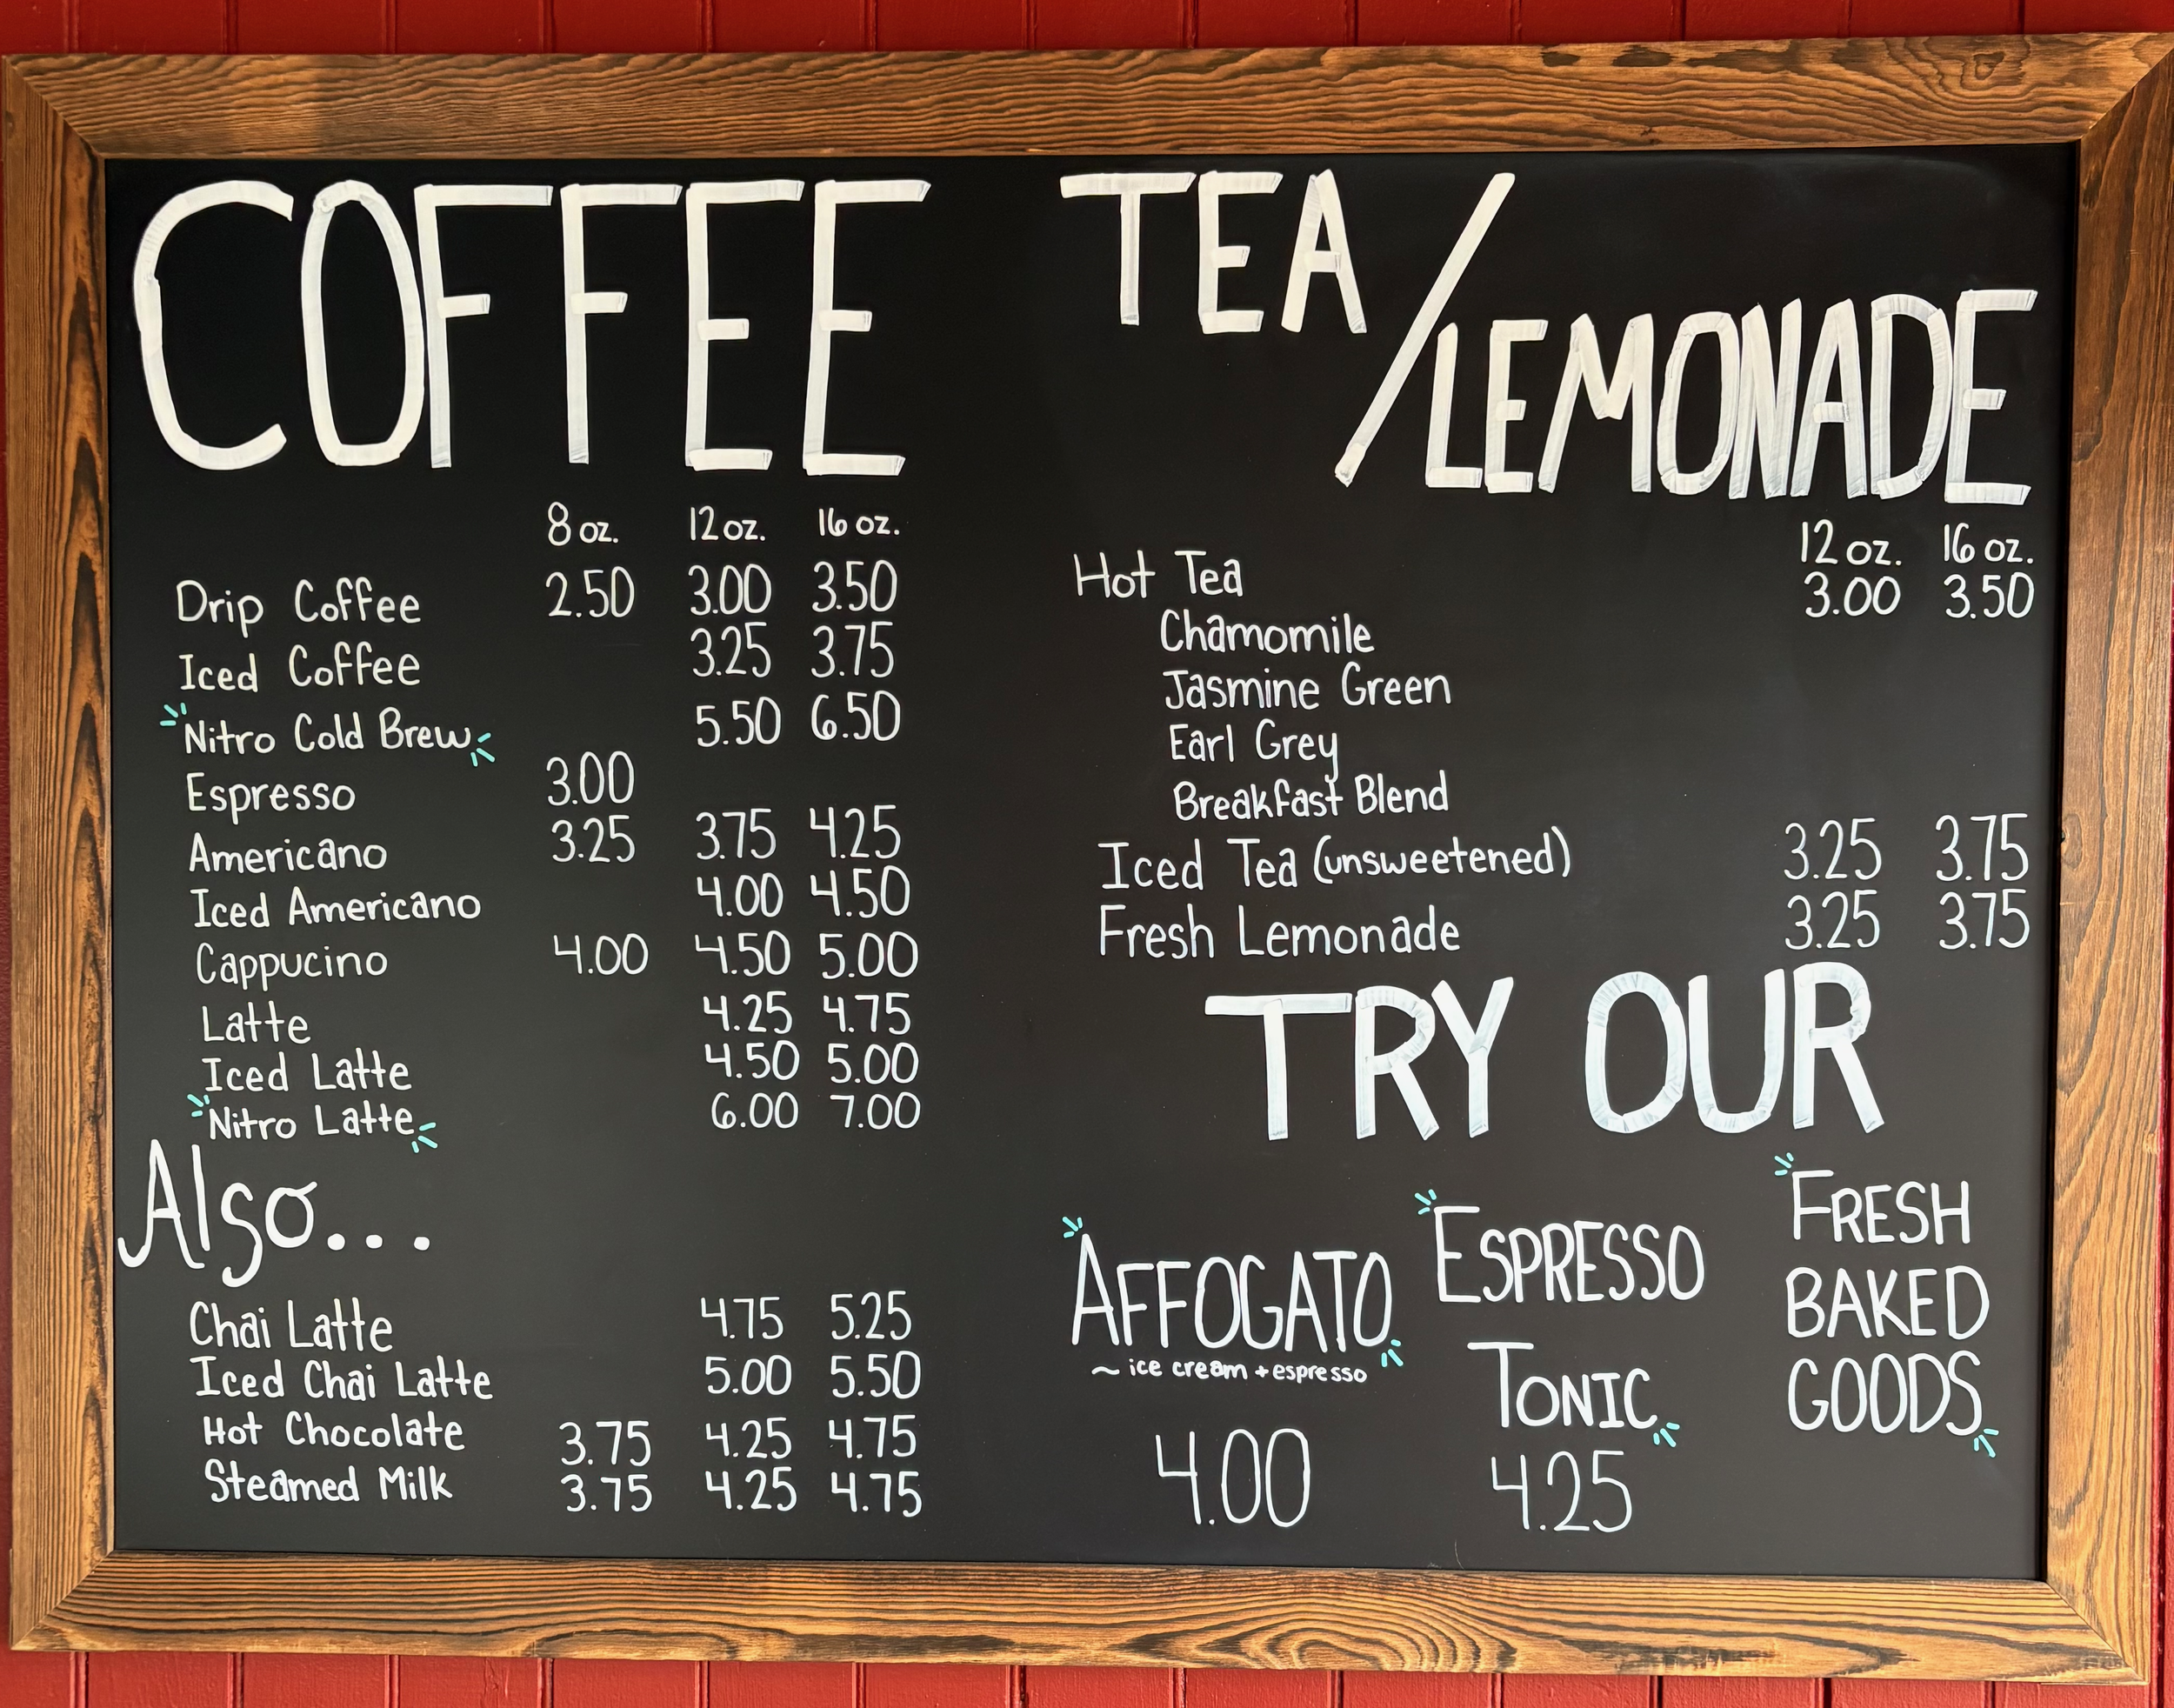 COFFEE
8 oz. 12 oz. 16 oz.
Drip Coffee 2.50 3.00 3.50
Iced Coffee 3.25 3.75
Nitro Cold Brew 5.50 6.50
Espresso 3.00
Americano 3.25 3.75 4.25
Iced Americano 4.00 4.50
Cappucino 4.00 4.50 5.00
Latte 4.25 4.75
Iced Latte 4.50 5.00
Nitro Latte 6.00 7.00
Also...
Chai Latte 4.75 5.25
Iced Chai Latte 5.00 5.50
Hot Chocolate 3.75 4.25 4.75
Steamed Milk 3.75 4.25 4.75
TEA/LEMONADE
12 oz. 16 oz.
Hot Tea 3.00 3.50
Chamomile
Jasmine Green
Earl Grey
Breakfast Blend
Iced Tea (unsweetened) 3.25 3.75
Fresh Lemonade 3.25 3.75
TRY OUR
AFFOGATO
~ ice cream + espresso
4.00
ESPRESSO
TONIC
4.25
FRESH
BAKED
GOODS